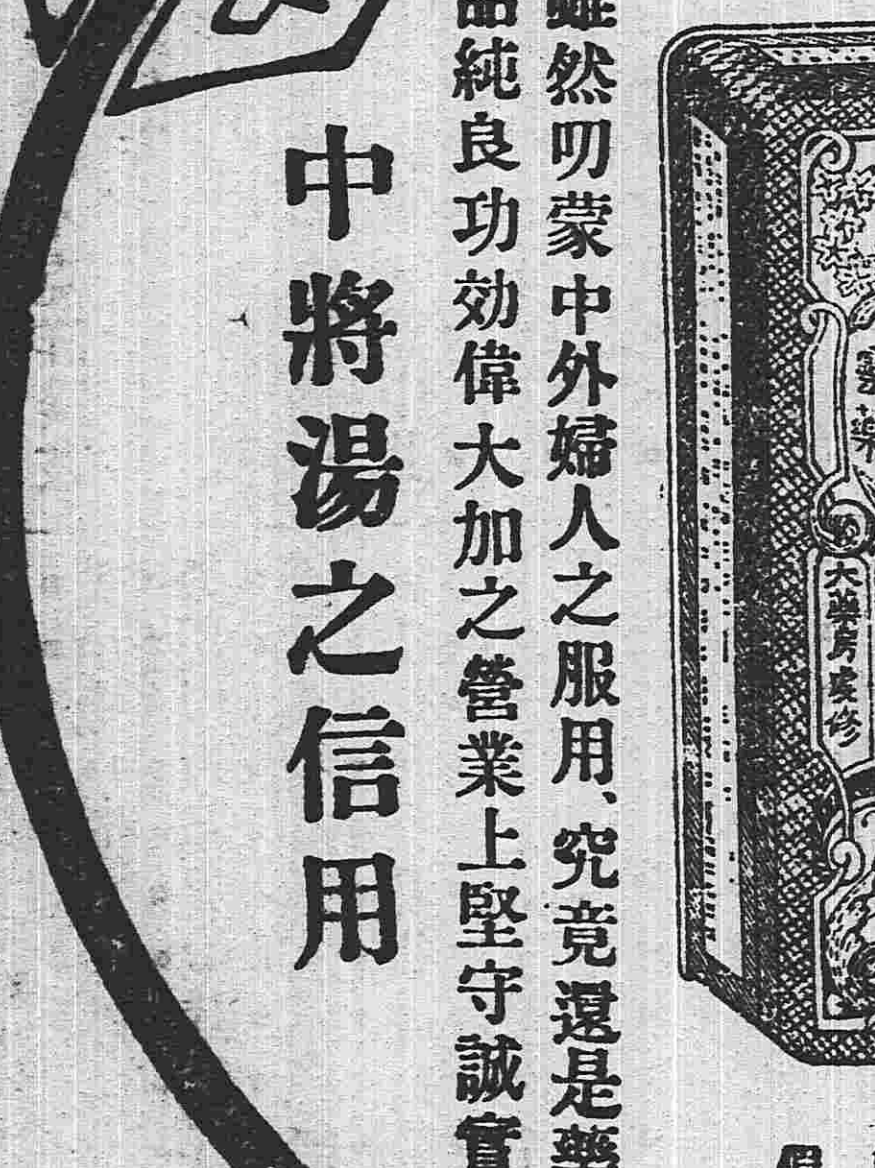 大藥房
雖然叨蒙中外婦人之服用、究竟還是藥
品純良功効偉大加之營業上堅守誠實
中將湯之信用